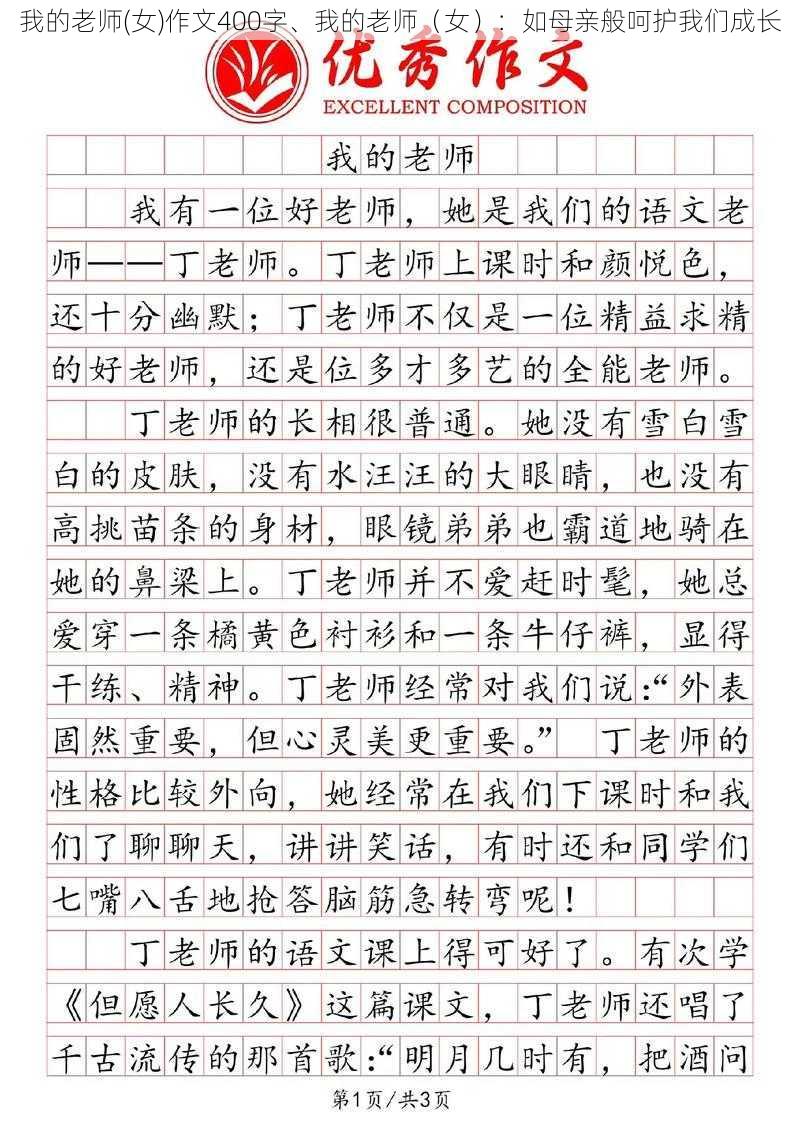 我的老师(女)作文400字、我的老师（女）：如母亲般呵护我们成长
优秀作文
EXCELLENT COMPOSITION
我的老师
我有一位好老师，她是我们的语文老
师——丁老师。丁老师上课时和颜悦色，
还十分幽默；丁老师不仅是一位精益求精
的好老师，还是位多才多艺的全能老师。
丁老师的长相很普通。她没有雪白雪
白的皮肤，没有水汪汪的大眼睛，也没有
高挑苗条的身材，眼镜弟弟也霸道地骑在
她的鼻梁上。丁老师并不爱赶时髦，她总
爱穿一条橘黄色衬衫和一条牛仔裤，显得
干练、精神。丁老师经常对我们说：“外表
固然重要，但心灵美更重要。” 丁老师的
性格比较外向，她经常在我们下课时和我
们了聊聊天，讲讲笑话，有时还和同学们
七嘴八舌地抢答脑筋急转弯呢！
丁老师的语文课上得可好了。有次学
《但愿人长久》这篇课文，丁老师还唱了
千古流传的那首歌：“明月几时有，把酒问
第1页/共3页